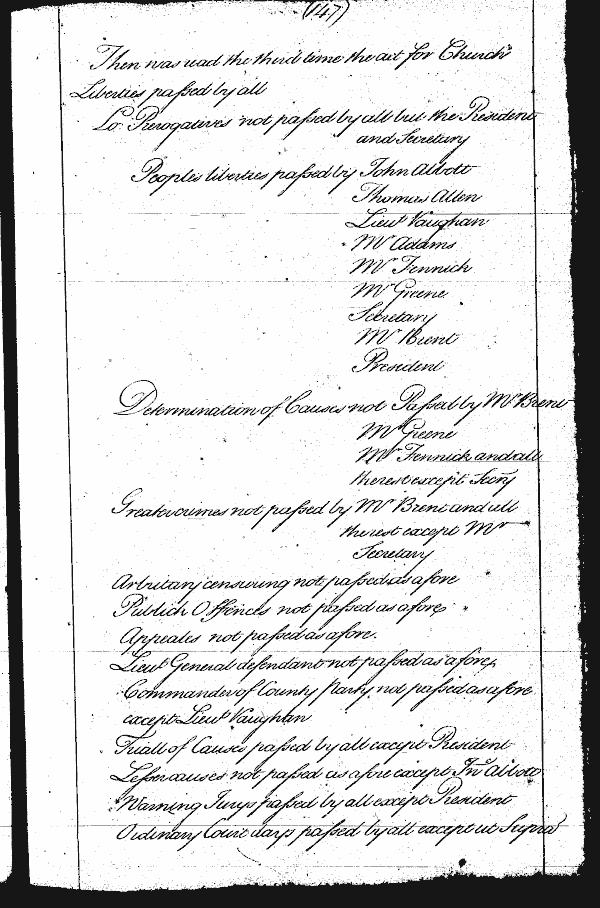 (147)
Then was read the third time the act for Church
Liberties passed by all
Lo: Prerogatives not passed by all but the President
and Secretary
Peoples liberties passed by John Abbott
Thomas Allen
Lieut Vaughan
Mr Adams
Mr Fennick
Mr Greene
Secretary
Mr Brent
President
Determination of Causes not Passed by Mr Brent
Mr Greene
Mr Fennick and all
the rest except Secry
Greater crimes not passed by Mr Brent and all
the rest except Mr
Secretary
Arbitary censuring not passed as afore
Publick Offences not passed as afore
Appeales not passed as afore.
Lieut General defendant not passed as afore,
Commander of County Party not passed as afore
except Lieut Vaughan
Triall of Causes passed by all except President
Lesser causes not passed as afore except Jno Abbott
Warning Jurys passed by all except President
Ordinary Court days passed by all except ut Supra